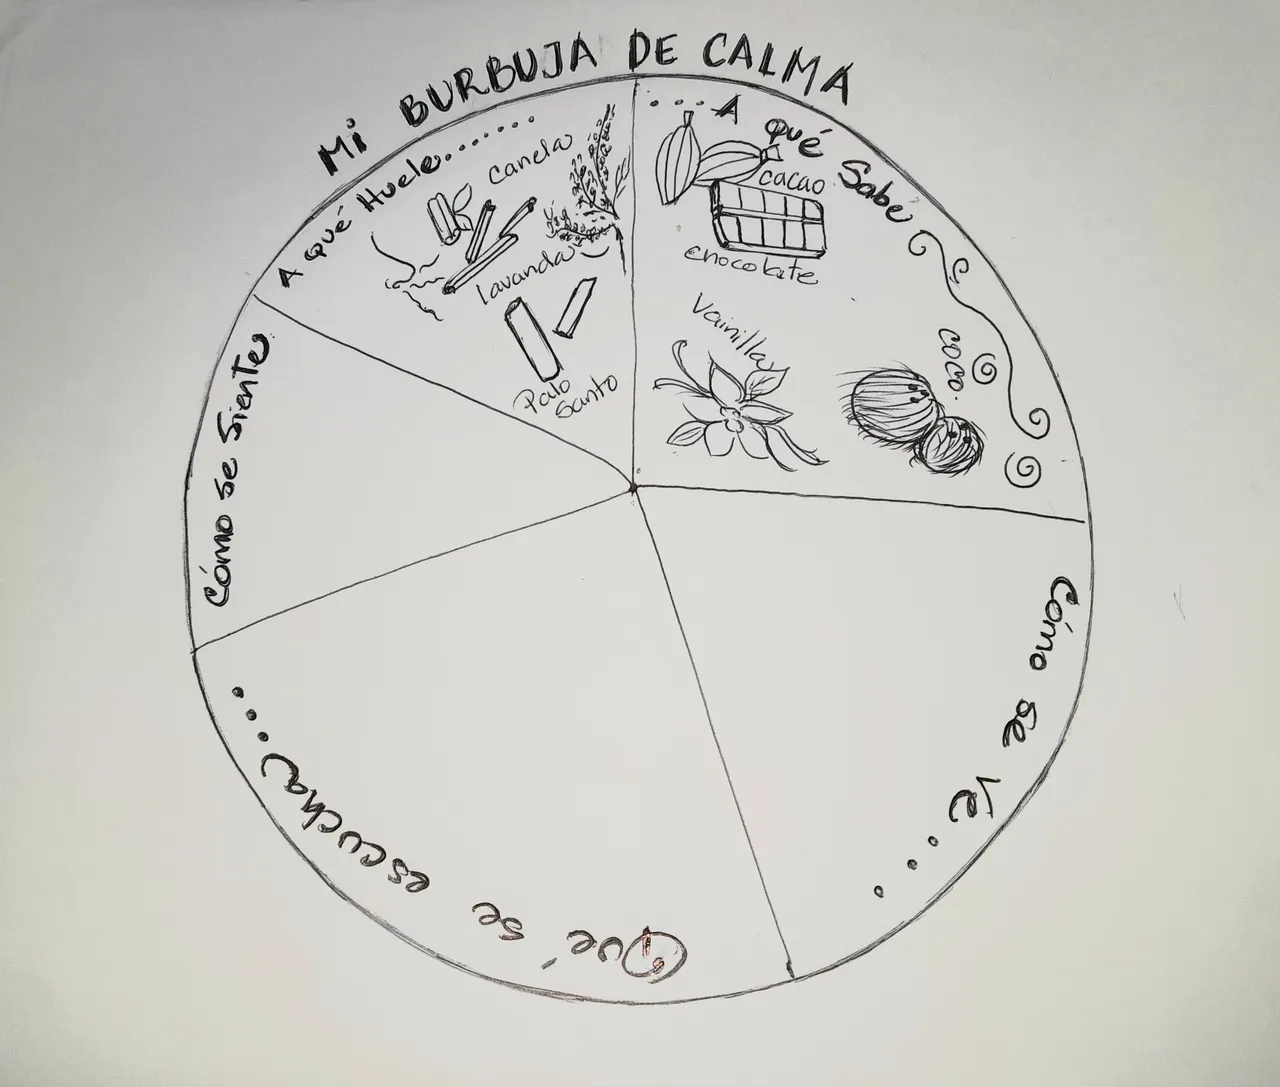 Mi BURBUJA DE CALMA
A qué Huele.........
canela
lavanda
Palo
Santo
....A qué Sabé
cacao
chocolate
Vainilla
coco.
Cómo se Ve....
Qué se escucha....
Cómo se Siente